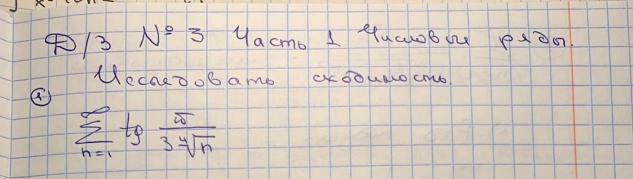 Д/З № 3 Часть 1 Числовые ряды.
Исследовать сходимость.
① \sum_{n=1}^{\infty} tg \frac{\pi}{3\sqrt[4]{n}}